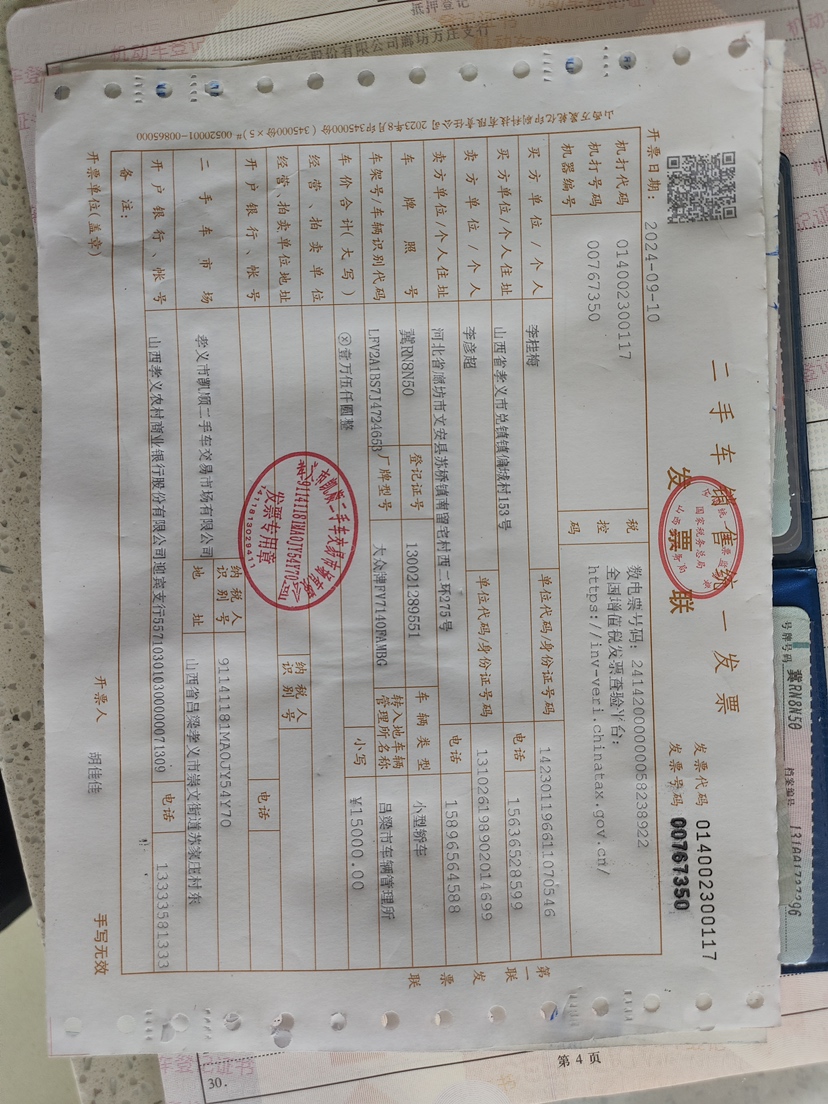 抵押登记
二手车销售统一发票
发票联
发票代码 014002300117
发票号码 00767350
开票日期: 2024-09-10
机打代码 014002300117
机打号码 00767350
机器编号
税控码
数电票号码: 24142000000058238922
全国增值税发票查验平台:
https://inv-veri.chinatax.gov.cn/
买方单位/个人 李桂梅 单位代码/身份证号码 142301196611070546
买方单位/个人住址 山西省孝义市兑镇镇 城村153号 电话 15636528599
卖方单位/个人 李彦超 单位代码/身份证号码 131026198902014699
卖方单位/个人住址 河北省廊坊市文安县苏桥镇南留宅村西二环275号 电话 15896564588
车牌照号 冀RN8N50 登记证号 130021289551 车辆类型 小型轿车
车架号/车辆识别代码 LFV2A1BS7J472465 厂牌型号 大众牌FV7140FAMBG 转入地车辆管理所名称 吕梁市车辆管理所
车价合计(大写) ⊗壹万伍仟圆整 小写 ¥15000.00
经营、拍卖单位
经营、拍卖单位地址 纳税人识别号
开户银行、帐号 电话
二手车市场 孝义市凯顺二手车交易市场有限公司 纳税人识别号 91141181MA0JY54Y70
地址 山西省吕梁孝义市崇文街道苏家庄村东
开户银行、帐号 山西孝义农村商业银行股份有限公司迎宾支行557103010300000071309 电话 13333581333
备注:
开票单位(盖章) 开票人 胡佳佳 手写无效
第一联 发票联
山西万晟乾亿印刷科技有限责任公司 2023年8月印345000份(345000份×5)# 00520001-00865000
国家税务总局
91141181MA0JY54Y70
发票专用章
1411813029411
号牌号码 冀RN8N50
档案编号
第 4 页
30.